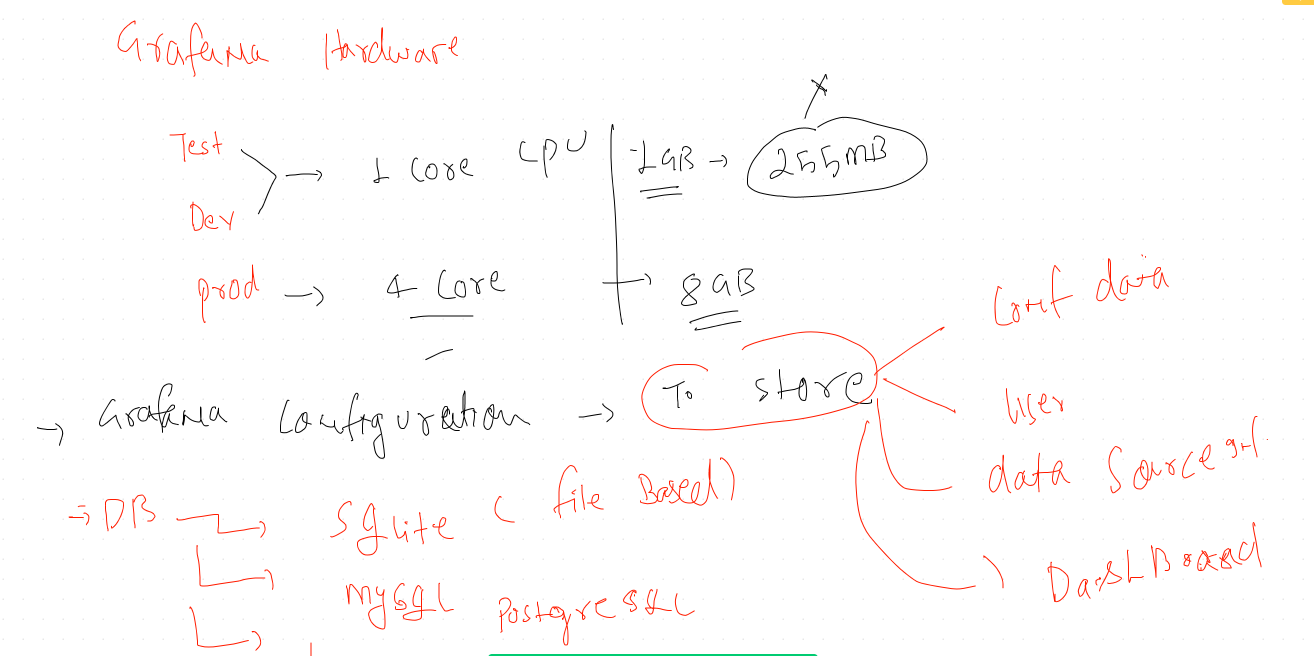 Grafana Hardware
Test
Dev
→ 1 Core CPU | 1GB → 255mB
x
prod → 4 Core → 8GB
→ Grafana Configuration → To store
Conf data
User
data Source inf.
DashBoard
→ DB → Sqlite (file Based)
→ mysql
→ PostgreSQL